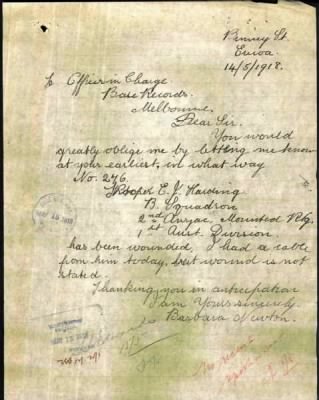 Binney St.
Euroa.
14/5/1918.
To Officer in Charge
Base Records.
Melbourne.
Dear Sir.
You would
greatly oblige me by letting me know
at your earliest, in what way
No. 276.
Trooper E. J. Harding
B. Squadron
2nd Anzac Mounted
1st Aust. Division
has been wounded, I had a cable
from him today, but wound is not
stated.
Thanking you in anticipation
I am Yours sincerely.
Barbara Newton.